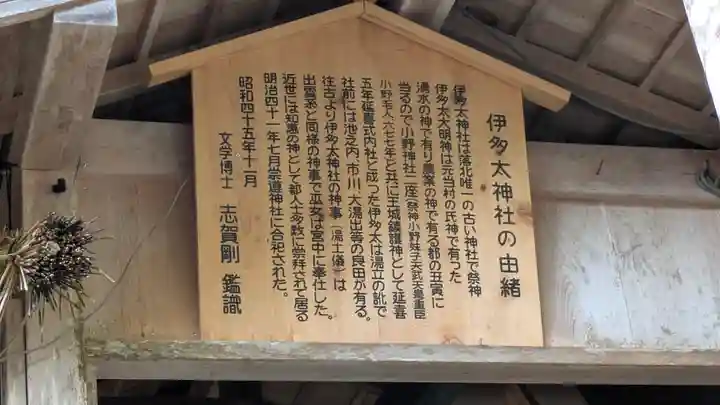 伊多太神社の由緒
伊多太神社は落北唯一の古い神社で祭神
伊多太大明神は元当村の氏神で有った
湧水の神で有り農業の神で有る都の丑寅に
当るので小野神社二座(祭神小野妹子天武天皇重臣
小野毛人六七七年)と共に王城鎮護神として延喜
五年延喜式内社と成った伊多太は湯立の訛で
社前には池之内、市川、大湯出等の良田が有る。
往古より伊多太神社の神事(湯土儀)は
出雲系と同様の神事で巫女は宮中に奉仕した。
近世には知恵の神として都人士多数に崇拝されて居る
明治四十一年七月崇道神社に合祀された。
昭和四十五年十一月
文学博士 志賀剛 鑑識